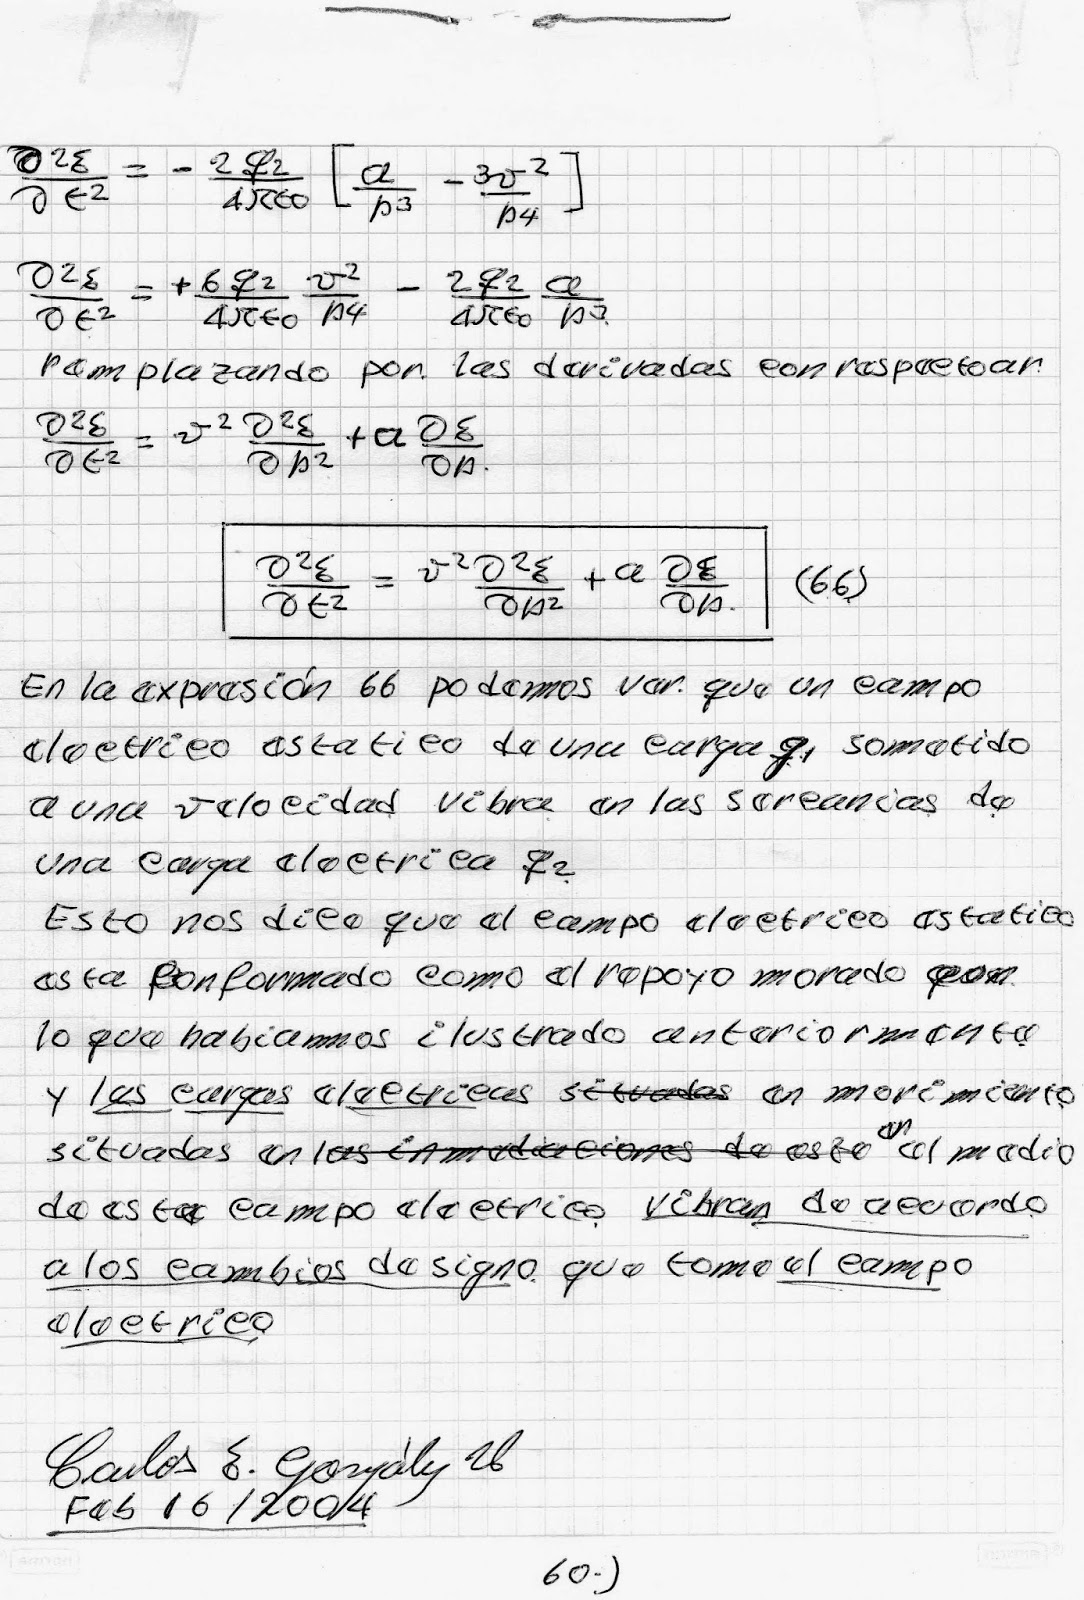 ∂²ξ/∂t² = - 2q₂/4πε₀ [a/r³ - 3v²/r⁴]
∂²ξ/∂t² = + 6q₂/4πε₀ v²/r⁴ - 2q₂/4πε₀ a/r³
remplazando por las derivadas con respecto a r
∂²ξ/∂t² = v² ∂²ξ/∂r² + a ∂ξ/∂r.
∂²ξ/∂t² = v² ∂²ξ/∂r² + a ∂ξ/∂r. (66)
En la expresión 66 podemos ver. que un campo
electrico estatico de una carga q₁ sometido
a una velocidad vibra en las sercanias de
una carga electrica q₂
Esto nos dice que el campo electrico estatico
esta conformado como el repoyo morado con
lo que habiamos ilustrado anteriormente
y las cargas electricas situadas en movimiento
situadas en las inmediaciones de este en el medio
de este campo electrico vibran de acuerdo
a los cambios de signo que tome el campo
electrico
Carlos E.
Feb 16/2004
60.)